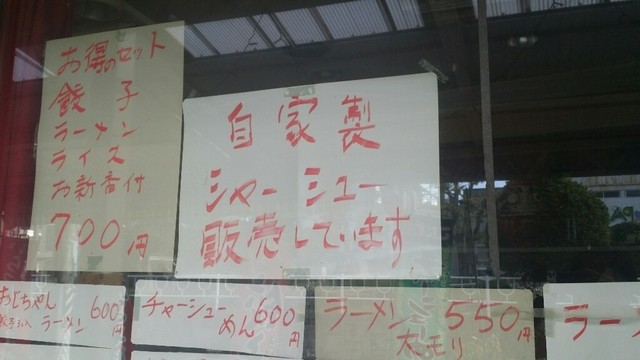 お得のセット
餃子
ラーメン
ライス
お新香付
700円
自家製
シャーシュー
販売しています
おじちゃん
ラーメン 600円
チャーシュー
めん 600円
ラーメン 550円
大モリ
ラー